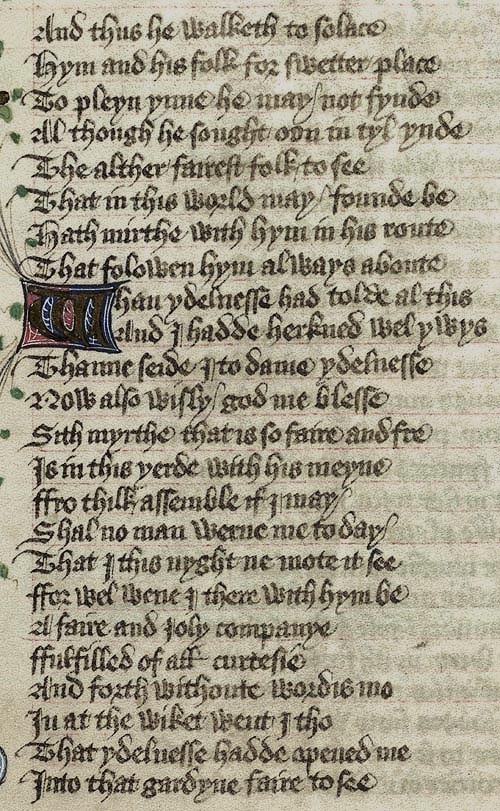 And thus he walketh to solace
Hym and his folk for swetter place
To pleyn ynne he may / not fynde
Al though he sought oon in tyl ynde
The alther fairest folk to see
That in this world may / founde be
Hath mirthe with hym in his route
That folowen hym always aboute
Whan ydelnesse had tolde al this
And I hadde herkned wel ywys
Thanne seide I to dame ydelnesse
Now also wisly / god me blesse
Sith myrthe that is so faire and fre
Is in this yerde with his meyne
ffro thilk assemble if I may /
Shal no man werne me to day /
That I this nyght ne mote it see
ffor wel wene I there with hym be
A faire and Joly companye
ffulfilled of all curtesie
And forth withoute wordis mo
In at the wiket went I tho
That ydelnesse hadde opened me
Into that gardyne faire to see